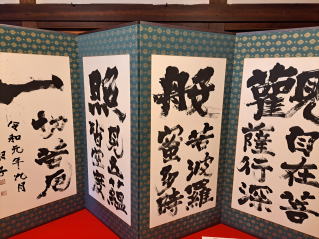 觀
自在菩
薩行深
般
若波羅
蜜多時
照
見五蘊
皆空度
一
切苦厄
令和元年九月
子